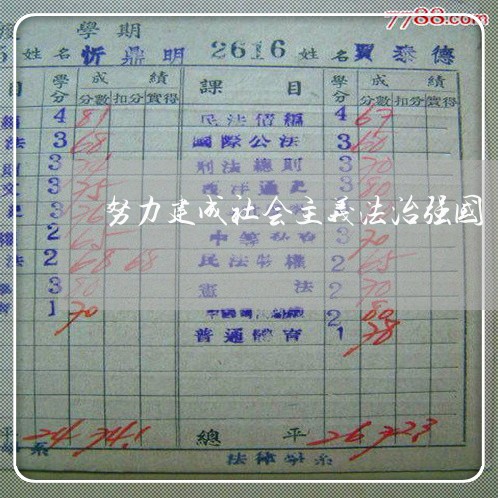 7788.com
學期
姓名 忻鼎明 2616 姓名 賈泰德
目 學分 成績 課目 學分 成績
分數 扣分 實得 分數 扣分 實得
4 81 民法債編 4 67
法 3 68 國際公法 3 60
3 刑法總則 3 70
3 75 西洋通史 3 80
3 76 3
努力建成社会主義法治强國
2 65 中等 3 70
法 2 68 68 民法物權 2 65
3 80 憲法 2 70
1 70 2 80
普通體育 1 78
平 24 74.1 總平 26 72.3
系 法律學系